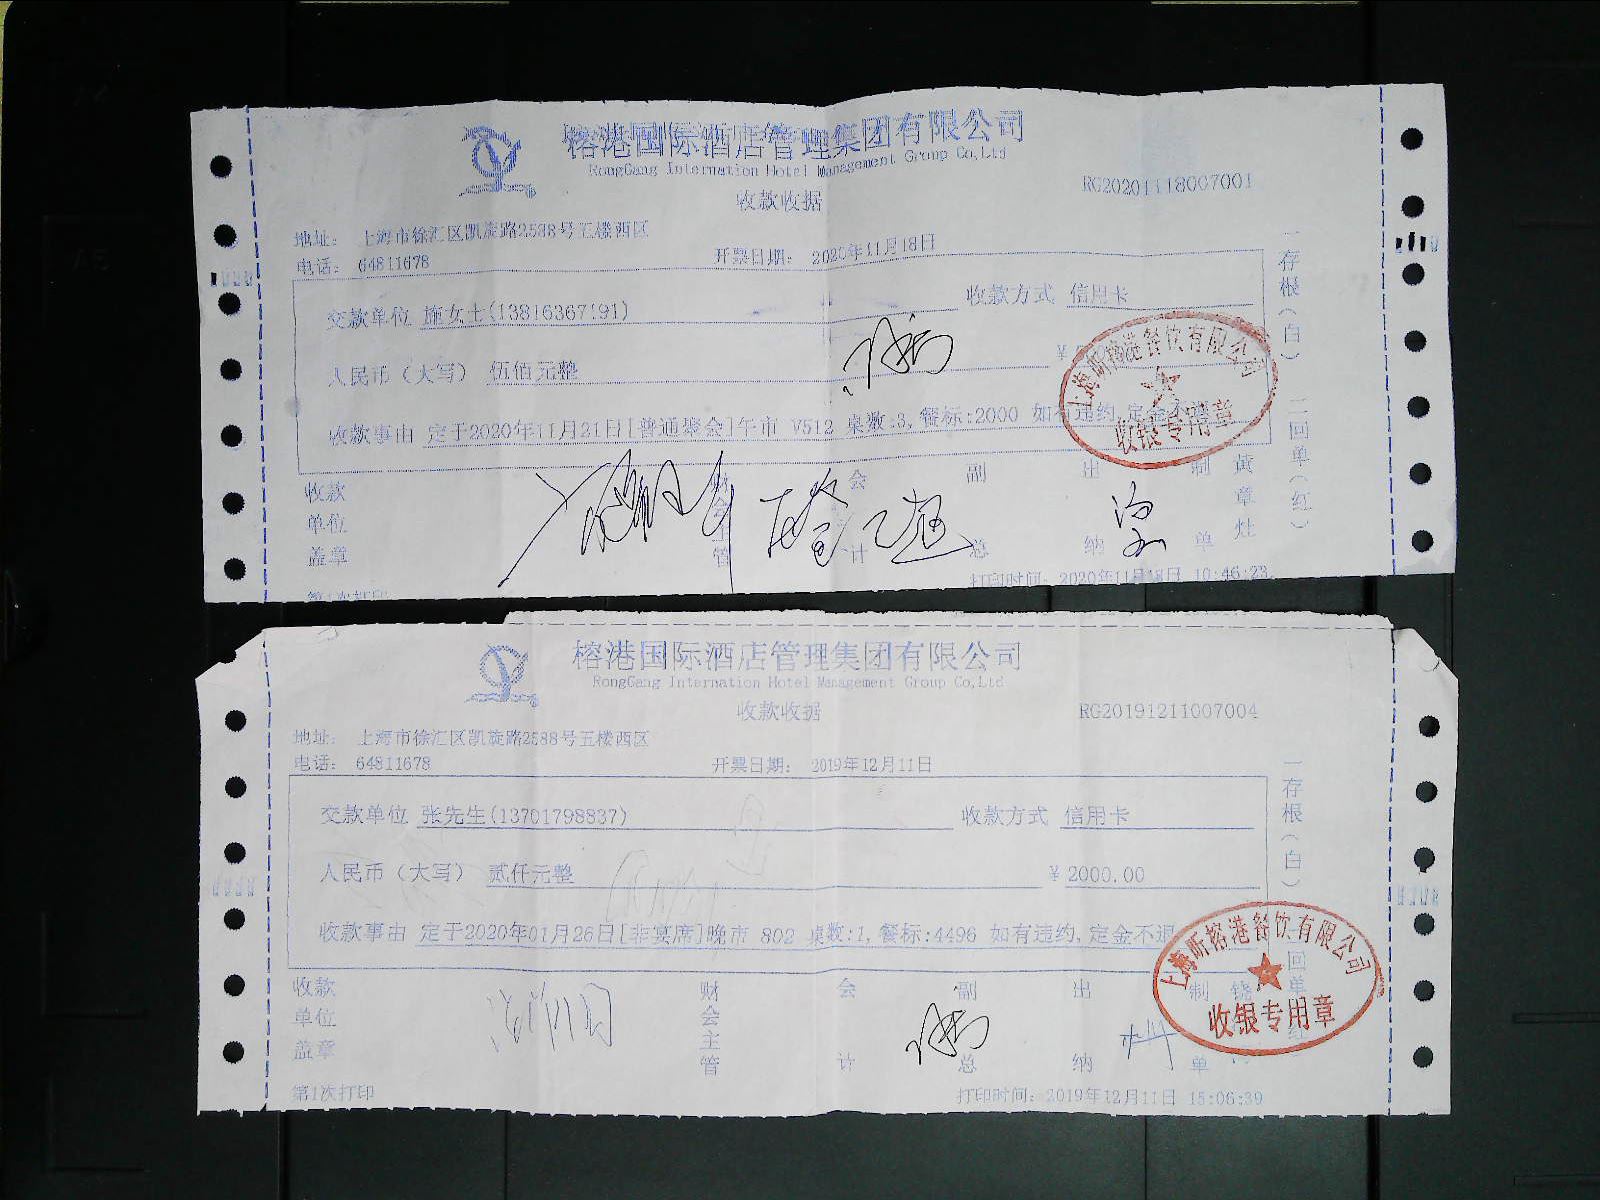 榕港国际酒店管理集团有限公司
RongGang Internation Hotel Management Group Co,Ltd
收款收据
RG20201118007001
地址： 上海市徐汇区凯旋路2588号五楼西区
电话： 64811678
开票日期： 2020年11月18日
交款单位 施女士(13816367191)
收款方式 信用卡
人民币（大写） 伍佰元整
¥
收款事由 定于2020年11月21日[普通聚会]午市 V512 桌数:3,餐标:2000 如有违约,定金不退
上海昕榕港餐饮有限公司
收银专用章
一存根（白） 二回单（红）
收款单位盖章
财会主管
会计
副总
出纳
制单
黄章灶
打印时间：2020年11月18日 10:46:23
第1次打印
榕港国际酒店管理集团有限公司
RongGang Internation Hotel Management Group Co,Ltd
收款收据
RG20191211007004
地址： 上海市徐汇区凯旋路2588号五楼西区
电话： 64811678
开票日期： 2019年12月11日
交款单位 张先生(13701798837)
收款方式 信用卡
人民币（大写） 贰仟元整
¥2000.00
收款事由 定于2020年01月26日[非宴席]晚市 802 桌数:1,餐标:4496 如有违约,定金不退
上海昕榕港餐饮有限公司
收银专用章
一存根（白） 回单
收款单位盖章
财会主管
会计
副总
出纳
制单
第1次打印
打印时间：2019年12月11日 15:06:39